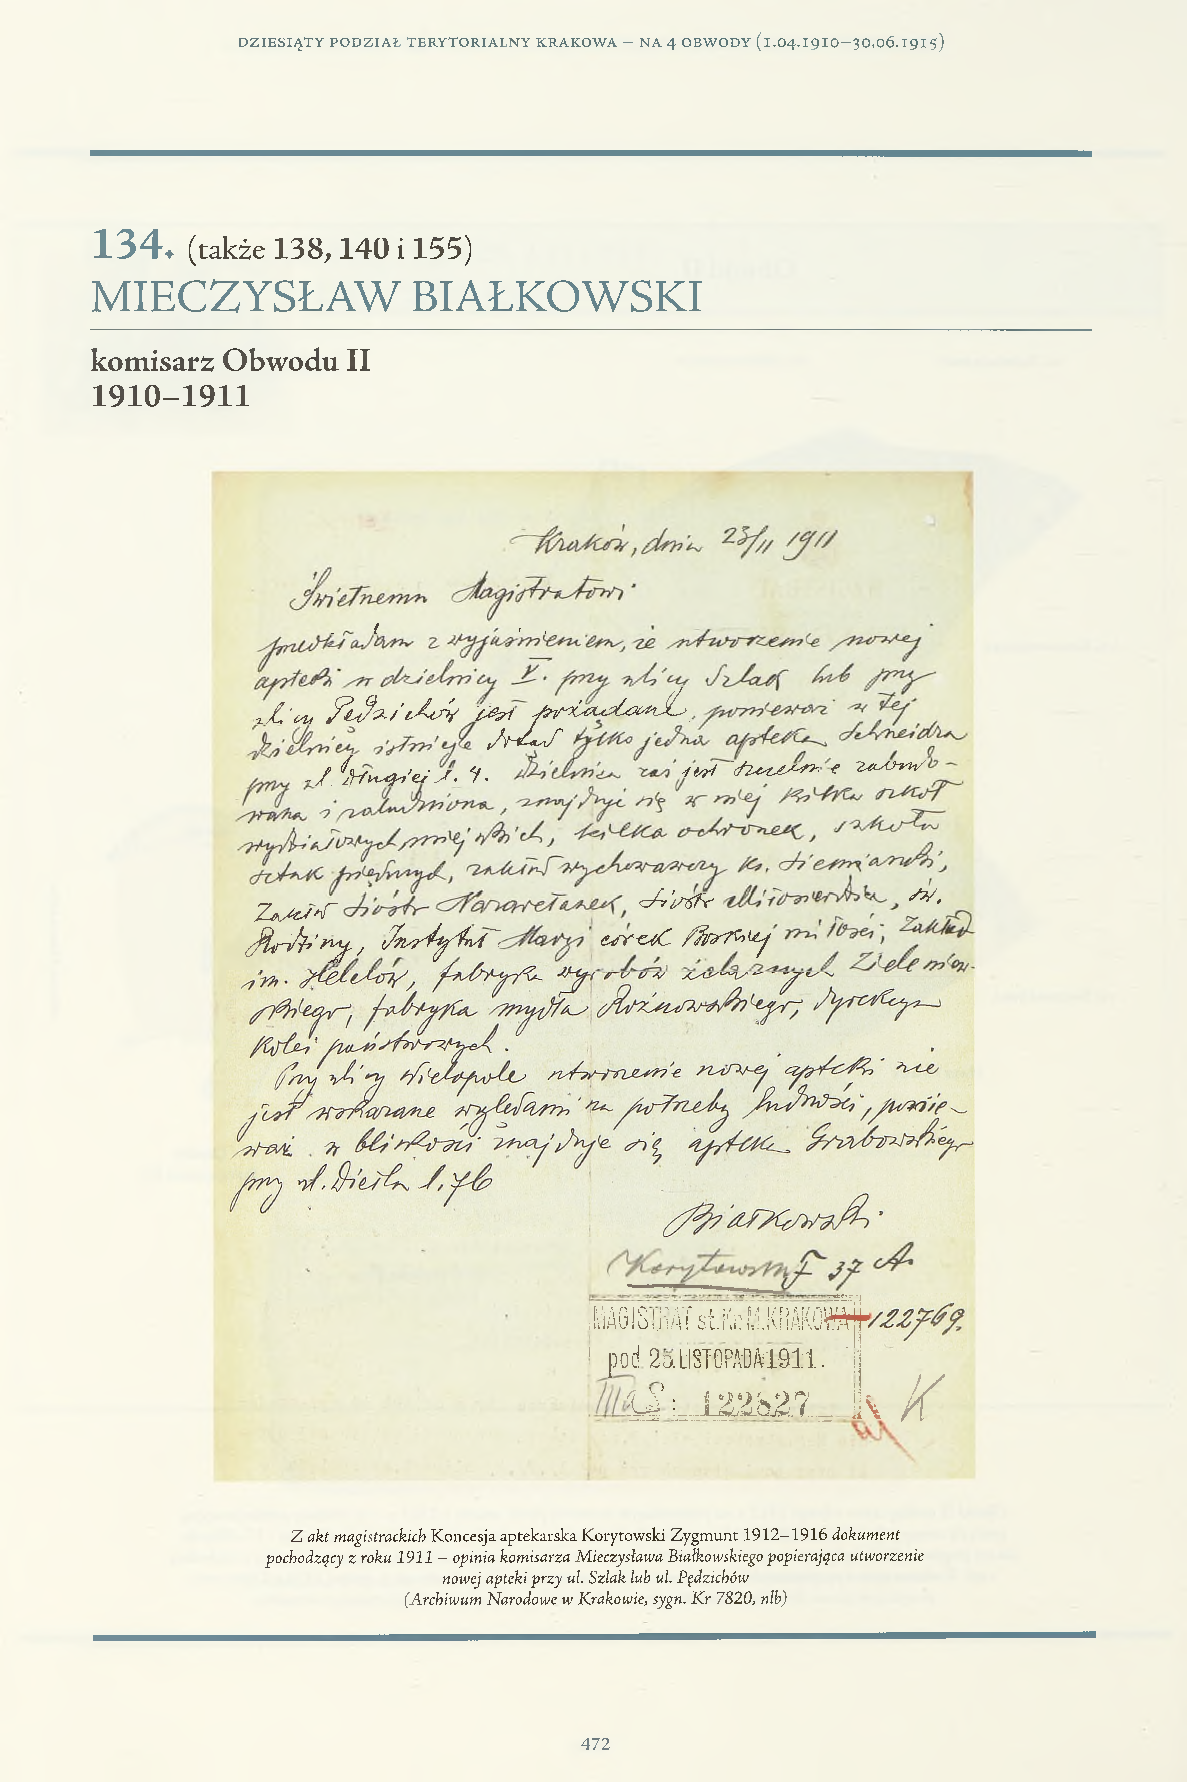 DZIESIĄTY PODZIAŁ TERYTORIALNY KRAKOWA – NA 4 OBWODY (1.04.1910–30.06.1915)
134. (także 138, 140 i 155)
MIECZYSŁAW BIAŁKOWSKI
komisarz Obwodu II
1910–1911
Kraków, dnia 23/11 1911
Świetnemu Magistratowi
przedkładam z wyjaśnieniem, że utworzenie nowej
apteki w dzielnicy V. przy ulicy Szlak lub przy
ulicy Pędzichów jest pożądane, ponieważ w tej
dzielnicy istnieje dotąd tylko jedna apteka Schneidra
przy ul Długiej l. 4. Dzielnica zaś jest szczelnie zabudo-
wana i zaludniona, znajduje się w niej kilka szkół
wydziałowych miejskich, kilka ochronek, szkoła
sztuk pięknych, zakład wychowawczy ks. Siemaszki,
Zakład Sióstr Nazaretanek, Sióstr Miłosierdzia, św.
Rodziny, Instytut Maryi córek Boskiej miłości, Zakład
im. Helclów, fabryka wyrobów żelaznych Zieleniew-
skiego, fabryka mydła Rożnowskiego, dyrekcya
kolei państwowych.
Przy ulicy Wielopole utworzenie nowej apteki nie
jest wskazane względami na potrzeby ludności, ponie-
waż w bliskości znajduje się apteka Grabowskiego
przy ul. Dietla l. 76
Białkowski
Korytowski F 37 A.
MAGISTRAT st. Kr. M. KRAKOWA 122769.
pod. 25. LISTOPADA 1911.
III a L: 122827
K
Z akt magistrackich Koncesja aptekarska Korytowski Zygmunt 1912–1916 dokument
pochodzący z roku 1911 – opinia komisarza Mieczysława Białkowskiego popierająca utworzenie
nowej apteki przy ul. Szlak lub ul. Pędzichów
(Archiwum Narodowe w Krakowie, sygn. Kr 7820, nlb)
472